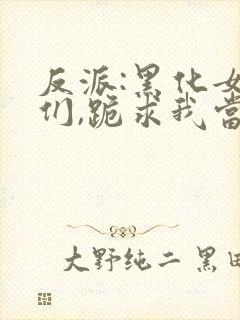 反派:黑化女
们,跪求我當
大野纯二 黑田